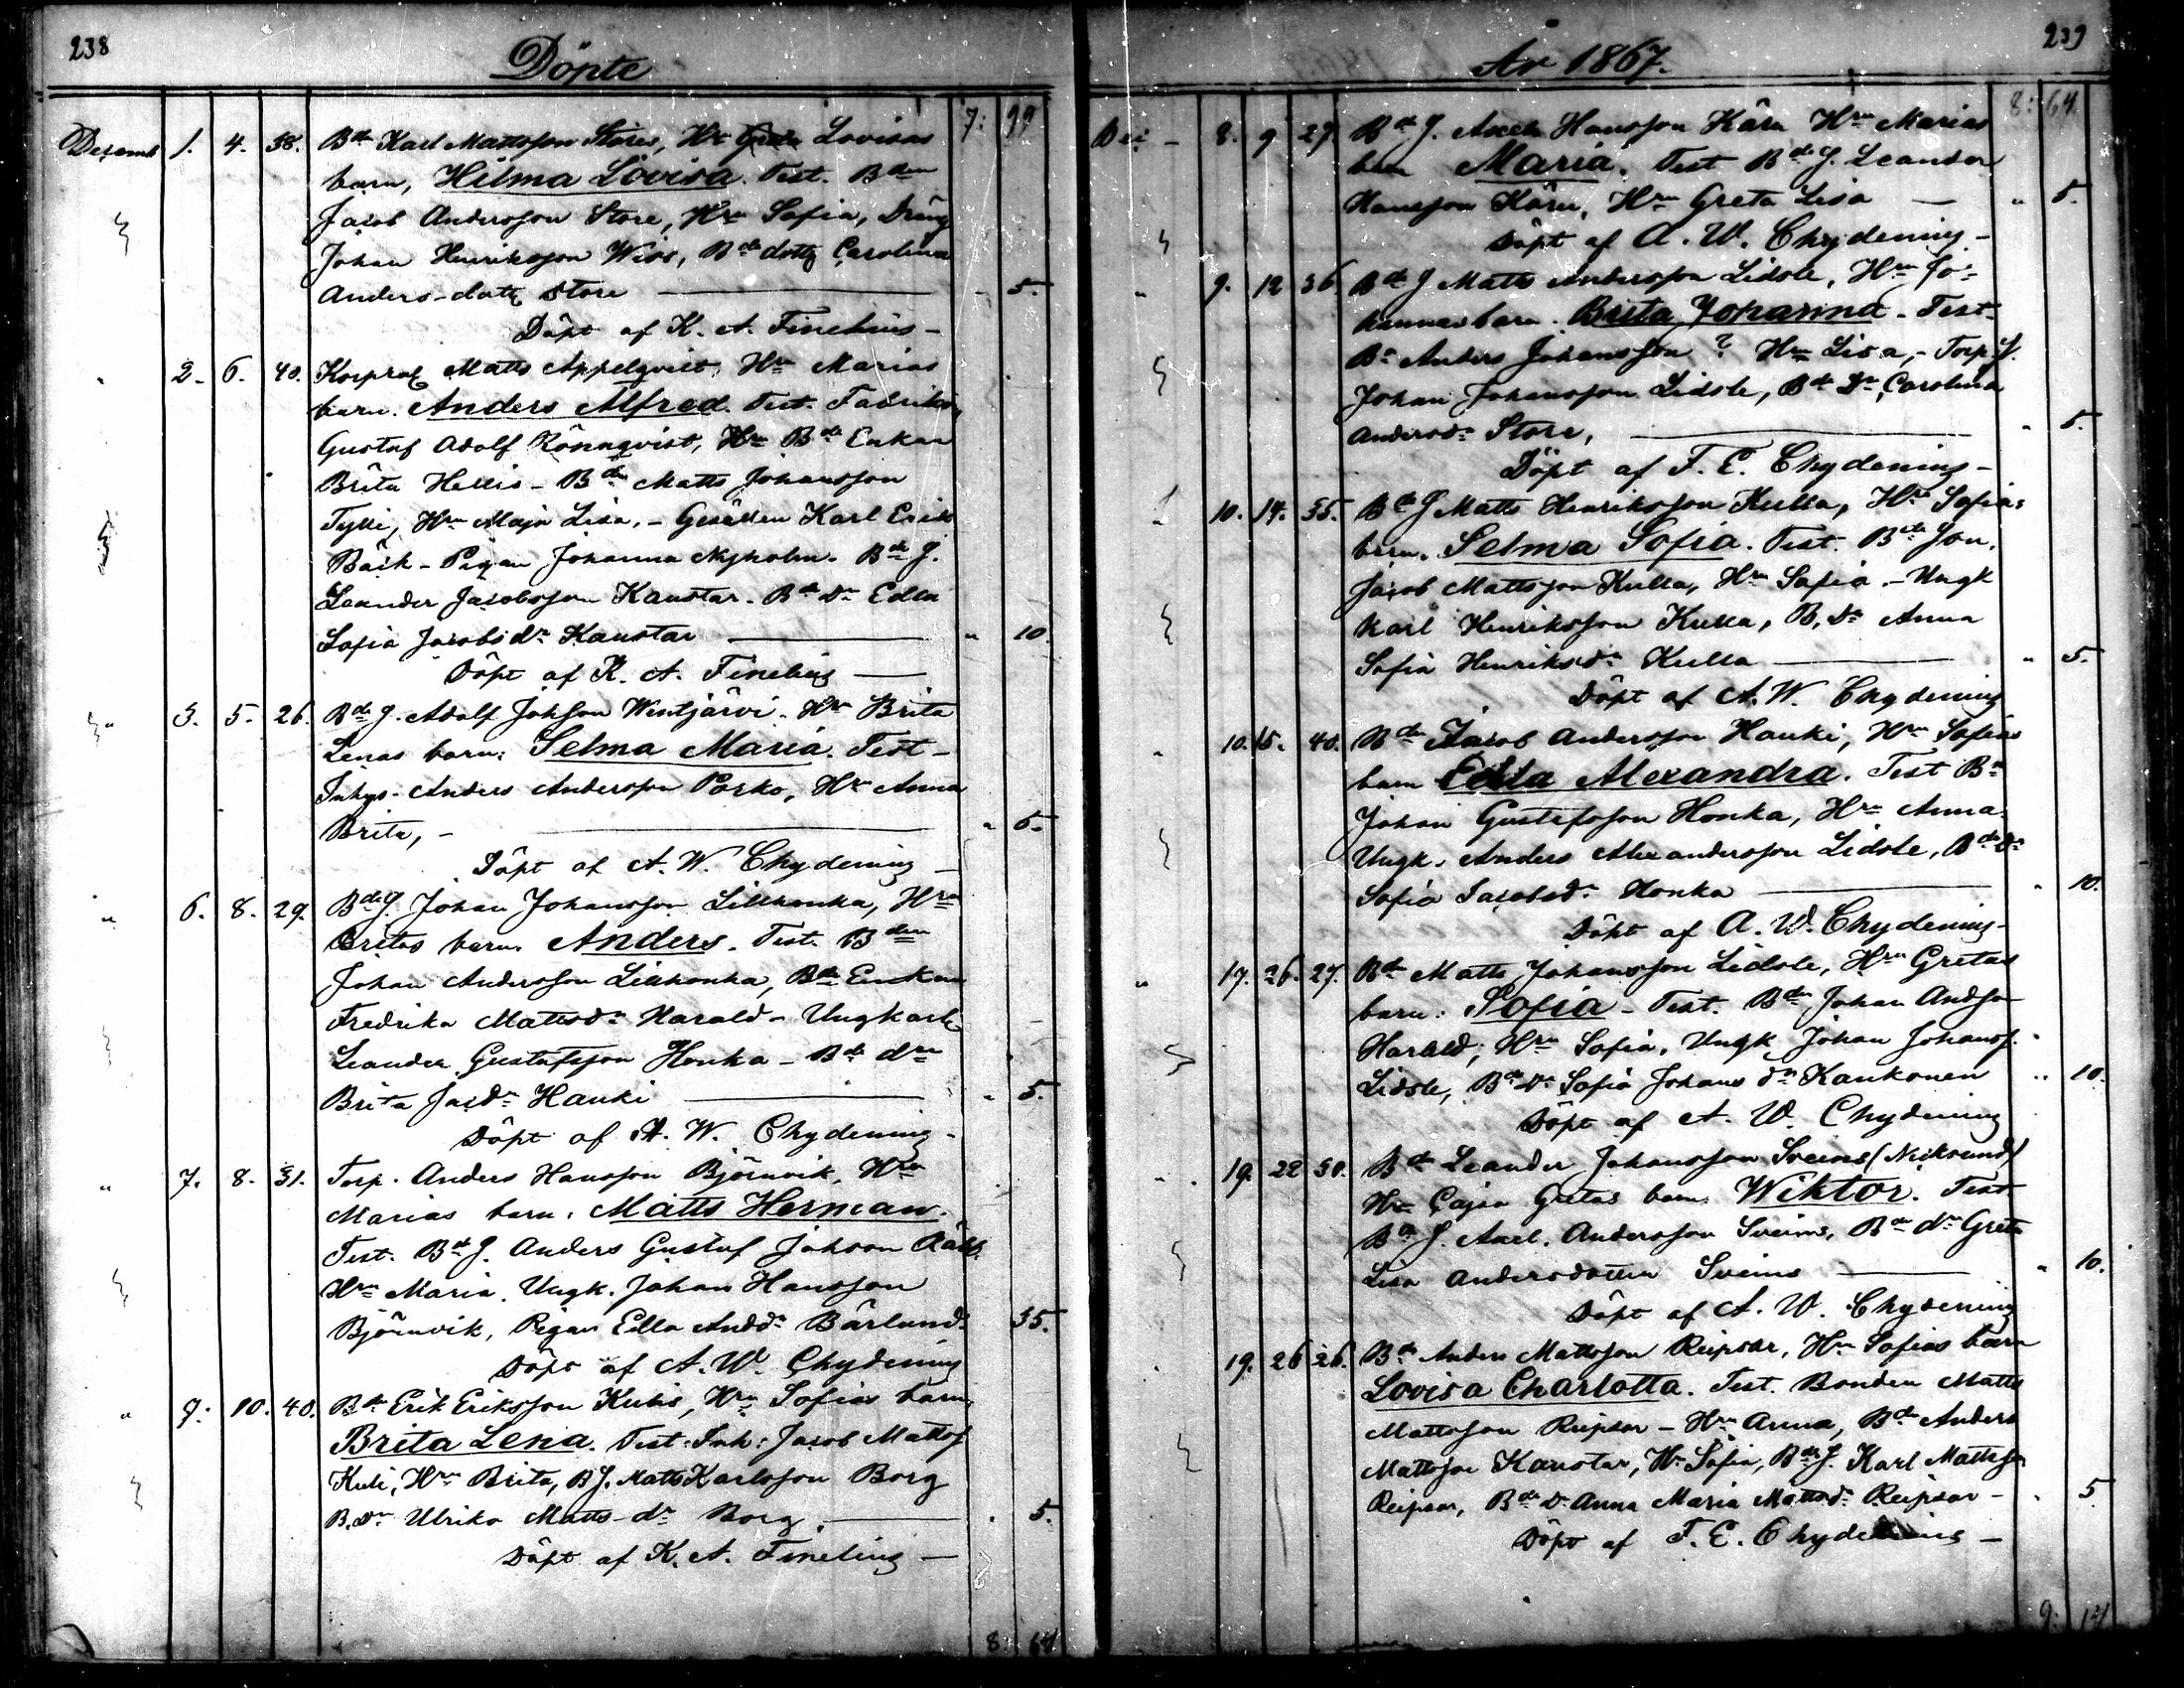 238
Döpte
7: 99
Decemb 1. 4. 38. Bdn Karl Mattsson Stores, Hu Lovisas
barn, Hilma Lovisa. Test. Bden
Jacob Andersson Store, Hru Sofia, Dräng
Johan Henriksson Wiss, Bde dottr Carolina
Anders-dottr Store - 5.
Döpt af K. A. Finelius -
" 2. 6. 40. Korpral Matts Appelqvist, Hru Marias
barn. Anders Alfred. Test. Fabriks
Gustaf Adolf Rönnqvist, Hru Bde Enkan
Brita Hellis - Bdn Matts Johansson
Tylli, Hru Maja Lisa, - Gesällen Karl Erik
Bäck - Pigan Johanna Nyholm. Bde J.
Leander Jacobsson Kaustar. Bde Dr Edla
Sofia Jacobsdr Kaustar " 10.
Döpt af K. A. Finelius
" 3. 5. 26. Bde J. Adolf Johsson Wintjärvi. Hru Brita
Lenas barn: Selma Maria. Test -
Inhys. Anders Andersson Porko, Hr Anna
Brita, - " 5.
Döpt af A. W. Chydenius -
" 6. 8. 29. Bde J. Johan Johansson Lillhonka, Hru
Britas barn. Anders. Test. Bden
Johan Andersson Lillhonka, Bde Enkan
Fredrika Mattsdr Harald - Ungkarl
Leander Gustafsson Honka - Bde drn
Brita Jacdr Hauki " 5.
Döpt af A. W. Chydenius -
" 7. 8. 31. Torp. Anders Hansson Björnvik, Hru
Marias barn. Matts Herman.
Test. Bde J. Anders Gustaf Johson
Hru Maria. Ungk. Johan Hansson
Björnvik, Pigan Edla Anddr Bärlund 35.
Döpt af A. W. Chydenius
" 9. 10. 40. Bdn Erik Eriksson Kulis, Hru Sofias barn,
Brita Lena. Test: Inh: Jacob Matts
Kuli, Hru Brita, B J. Matts Karlsson Borg
B. Dr Ulrika Matts-dr Borg. . 5.
Döpt af K. A. Finelius -
8: 64
239
År 1867.
8: 64.
Dec - 8. 9 27. Bde J. Axel Hansson Kära Hru Marias
barn Maria. Test Bde J. Leander
Hansson Kära, Hru Greta Lisa - " 5.
Döpt af A. W. Chydenius -
" 9. 12 36 Bde J Matts Andersson Lidsle, Hru Jo-
hannas barn. Brita Johanna - Test -
Bn Anders Johansson ? Hru Lisa, - Torp J.
Johan Johansson Lidsle, Bde Dr Carolina
Andersdr Store, " 5.
Döpt af F. E. Chydenius -
" 10. 14. 35. Bde J Matts Henriksson Kulla, Hru Sofias
barn. Selma Sofia. Test. Bde Son.
Jacob Mattsson Kulla, Hru Sofia - Ungk
Karl Henriksson Kulla, B. Dr Anna
Sofia Henriksdr Kulla " 5.
Döpt af A. W. Chydenius
" 10. 15. 40. Bdn Jacob Andersson Hauki, Hru Sofias
barn Edla Alexandra. Test Bn
Johan Gustafsson Honka, Hru Anna.
Ungk. Anders Alexandersson Lidsle, Bde Dr
Sofia Jacobsdr Honka " 10.
Döpt af A. W. Chydenius -
" 17. 26. 27. Bdn Matts Johansson Lidsle, Hru Gretas
barn: Sofia - Test. Bdn Johan Andsson
Harald, Hru Sofia, Ungk Johan Johanss.
Lidsle, Bde Dr Sofia Johans dr Kaukonen " 10.
Döpt af A. W. Chydenius
" 19. 22 30. Bdn Leander Johansson Sveins (Nicksund)
Hru Cajsa Gretas barn. Wiktor. Test
Bde J. Axel. Andersson Sveins, Bde dr Greta
Lisa Andersdotter Sveins " 10.
Döpt af A. W. Chydenius
19. 26 26. Bdn Anders Mattsson Reipsar, Hru Sofias barn
Lovisa Charlotta. Test. Bonden Matts
Mattsson Reipsar - Hru Anna, Bdn Anders
Mattsson Kaustar, Hr Sofia, Bde J. Karl Mattsson
Reipsar, Bde Dr Anna Maria Mattsdr Reipsar - . 5
Döpt af F. E. Chydenius -
9: 14